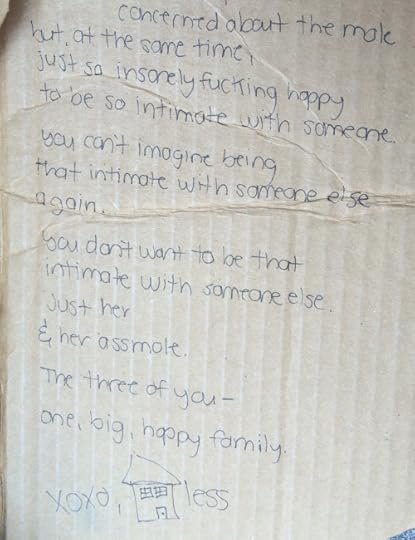 concerned about the mole
but, at the same time,
just so insanely fucking happy
to be so intimate with someone.
you can't imagine being
that intimate with someone else
again.
you don't want to be that
intimate with someone else.
just her
& her assmole.
The three of you-
one, big, happy family.
xoxo, less